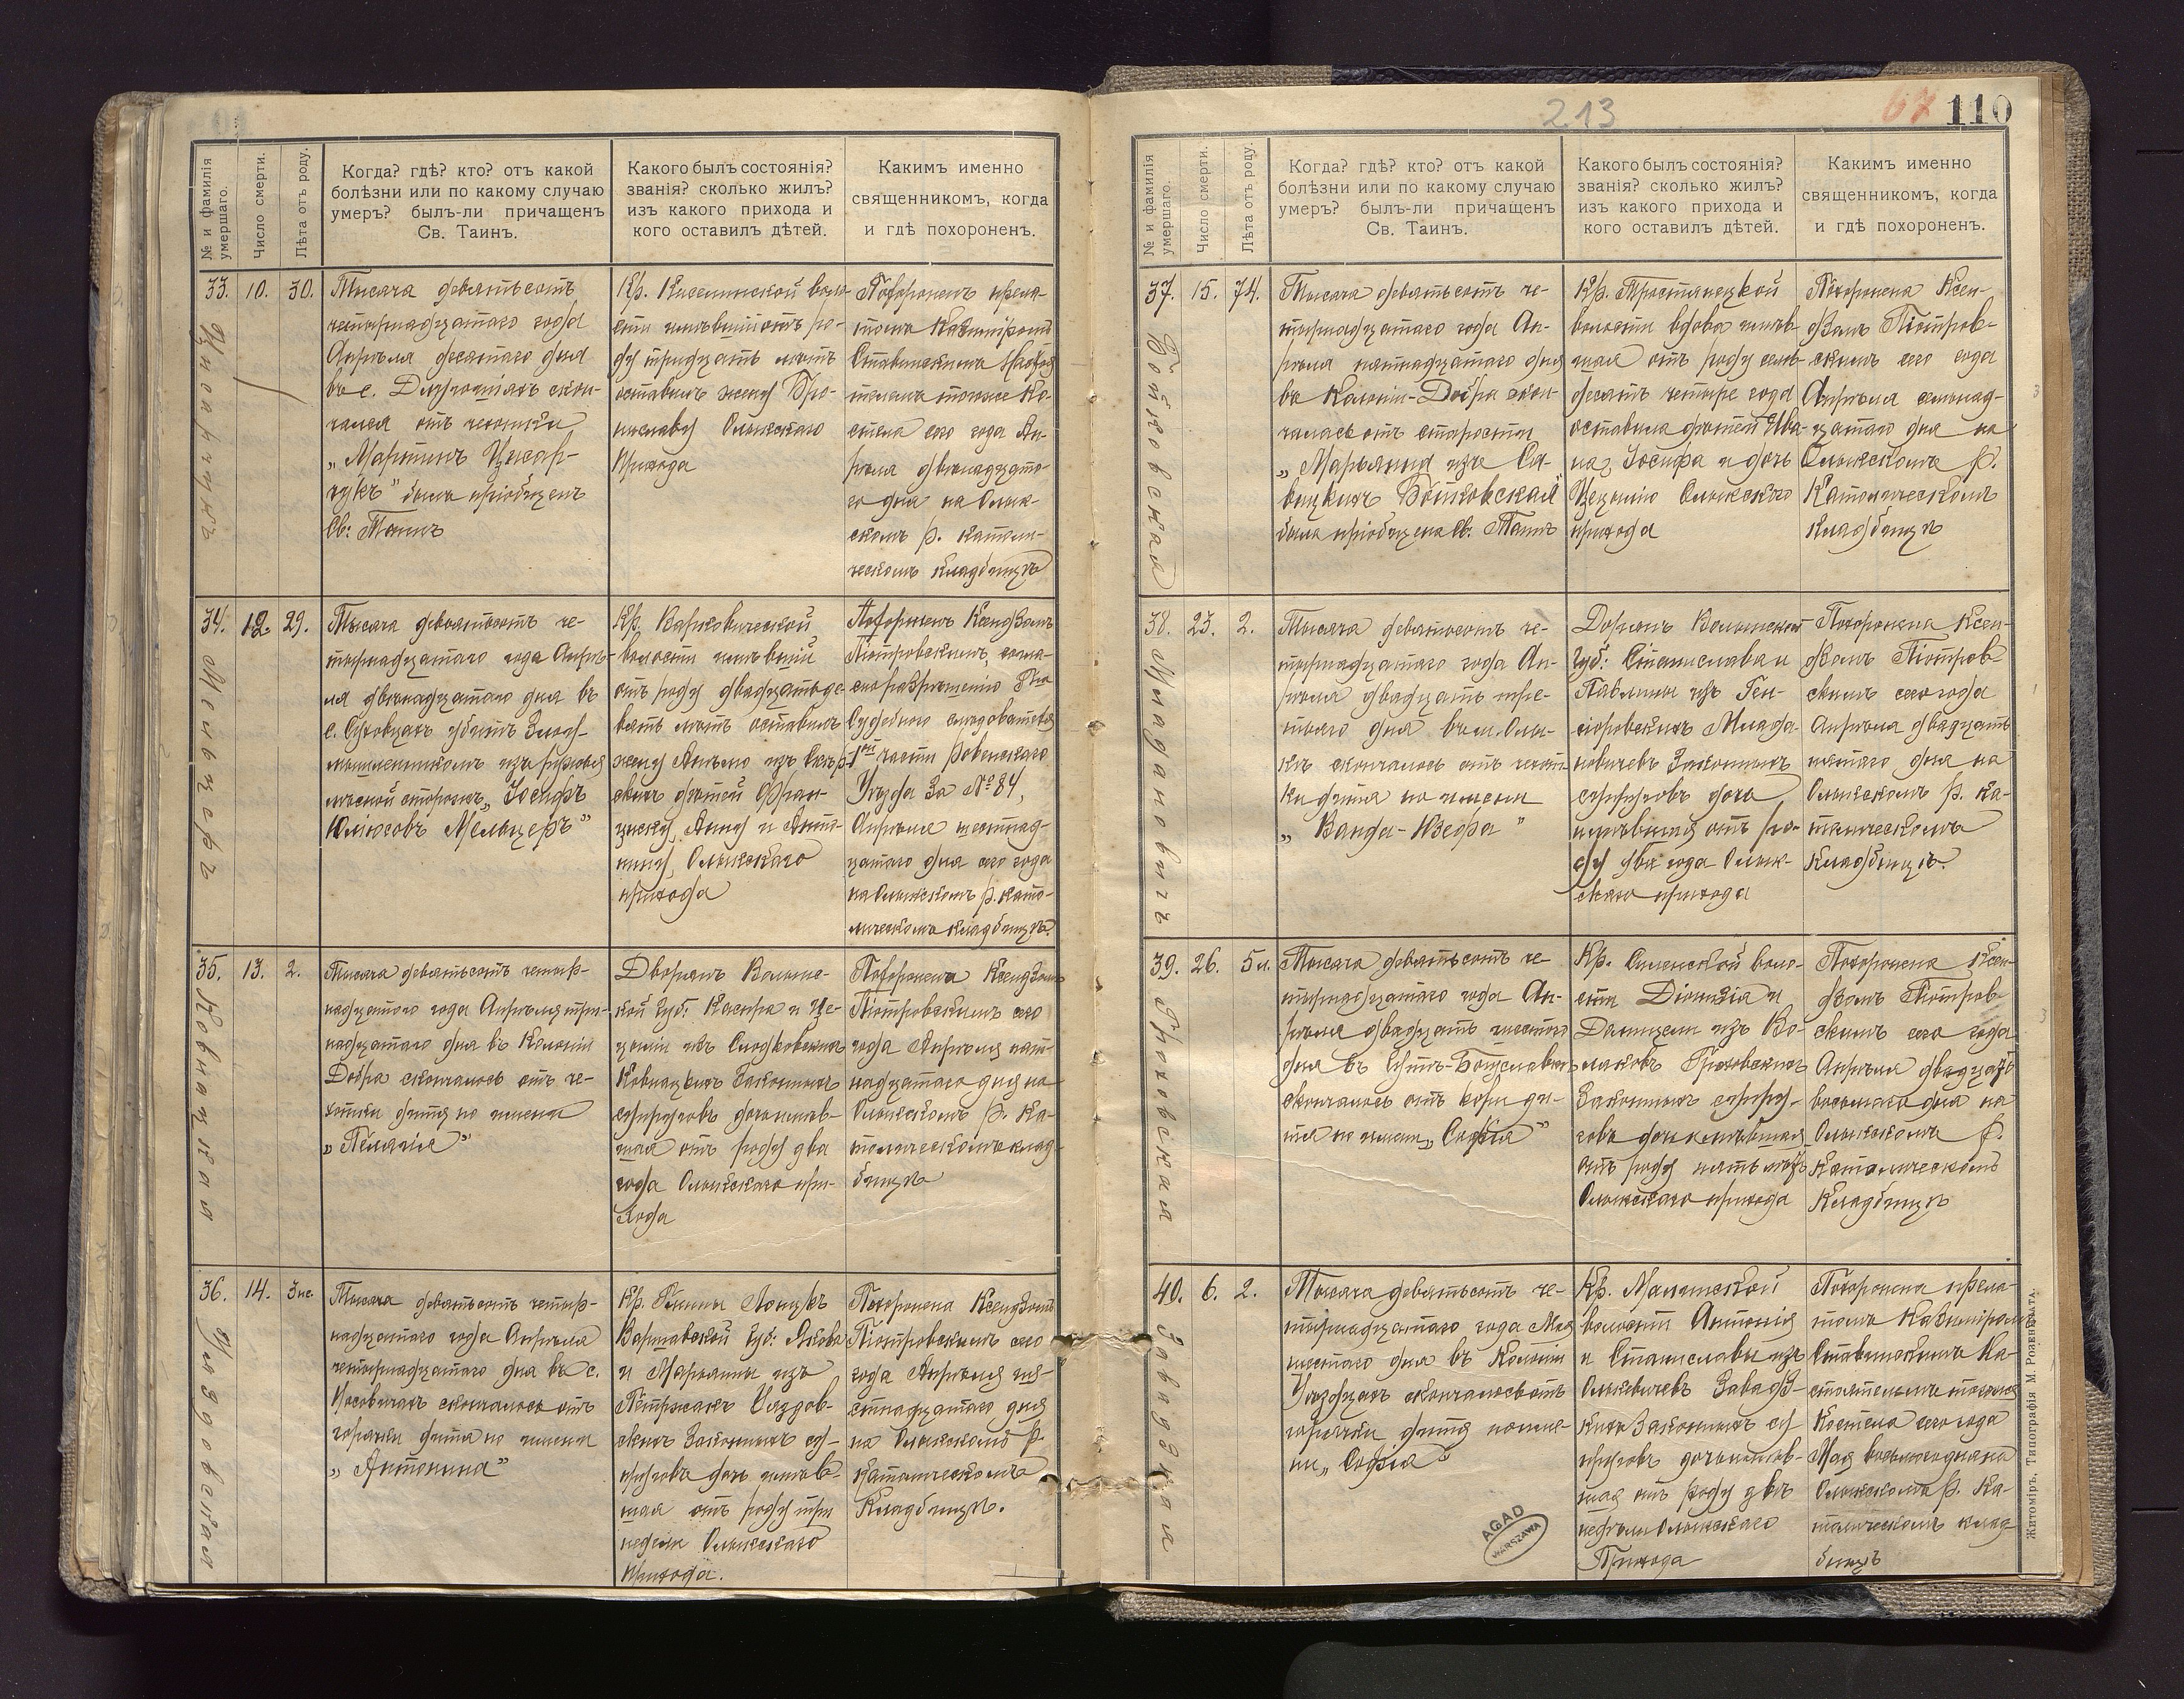 № и фамилія умершаго.
Число смерти.
Лѣта отъ роду.
Когда? гдѣ? кто? отъ какой
болѣзни или по какому случаю
умеръ? былъ-ли причащенъ
Св. Таинъ.
Какого былъ состоянія?
званія? сколько жилъ?
изъ какого прихода и
кого оставилъ дѣтей.
Какимъ именно
священникомъ, когда
и гдѣ похороненъ.
33.
10.
30.
Тысяча девятьсотъ
четырнадцатаго года
Апрѣля десятаго дня
скон-
чался отъ чахотки
„Мартинъ
чукъ" былъ пріобщенъ
Св: Таинъ
Кр. воло-
сти имѣвшій отъ ро-
ду тридцать лѣтъ
оставилъ жену Бро-
ниславу Олыкскаго
прихода
Похороненъ прела-
томъ Казимиромъ
Ставинскимъ
тогоже Ко-
стела сего года Ап-
рѣля двѣнадцата-
го дня на Олык-
скомъ р. католи-
ческомъ кладбищѣ
34. Мельцеръ
12
29.
Тысяча девятьсотъ че-
тырнадцатаго года Апрѣ-
ля двѣнадцатаго дня въ
с. убитъ Злоу-
мышленникомъ изъ ружья
лѣсной сторожъ „Іосифъ
Юліюсовъ Мельцеръ"
Кр. Варковической
волости имѣвшій
отъ роду двадцать де-
вять лѣтъ оставилъ
жену
дѣтей Фран-
циску, Анну и Анто-
нину, Олыкскаго
прихода
Похороненъ Ксендзомъ
Піотровскимъ, согла-
сно разрѣшенію
Судебного слѣдователя
1ой части Ровенскаго
Уѣзда за № 84,
Апрѣля шестнад-
цатаго дня сего года
на Олыкскомъ р. като-
лическомъ кладбищѣ.
35. Ковнацкая
13.
2.
Тысяча девятьсотъ четыр-
надцатого года Апрѣля три-
надцатаго дня въ Колоніи
Добра скончалось отъ ча-
хотки дитя по имени
„Пелагія"
Дворянъ Волынс-
кой Губ: и Це-
циліи изъ
Ковнацкихъ Законныхъ
супруговъ дочь имѣв-
шая отъ роду два
года Олыкскаго при-
хода
Похоронена Ксендзомъ
Піотровскимъ сего
года Апрѣля пят-
надцатаго дня на
Олыкскомъ р. Ка-
толическомъ клад-
бищѣ
36. Уяздовская
14.
3 не.
Тысяча девятьсотъ четыр-
надцатаго года Апрѣля
четырнадцатаго дня въ с.
скончалось отъ
горячки дитя по имени
„Антонина"
Кр. Гмины
Варшавской Губ: Якова
и Марьянны изъ
Уяздов-
скихъ Законныхъ су-
пруговъ дочь имѣв-
шая отъ роду три
недѣли Олыкскаго
прихода.
Похоронена Ксендзомъ
Піотровскимъ сего
года Апрѣля ше-
стнадцатаго дня
на Олыкскомъ р.
католическомъ
Кладбищѣ.
213
67
110
№ и фамилія умершаго.
Число смерти.
Лѣта отъ роду.
Когда? гдѣ? кто? отъ какой
болѣзни или по какому случаю
умеръ? былъ-ли причащенъ
Св. Таинъ.
Какого былъ состоянія?
званія? сколько жилъ?
изъ какого прихода и
кого оставилъ дѣтей.
Какимъ именно
священникомъ, когда
и гдѣ похороненъ.
37. Бойковская
15.
74.
Тысяча девятьсотъ че-
тырнадцатаго года Ап-
рѣля пятнадцатаго дня
въ Колоніи-Добра скон-
чалась отъ старости
„Марьянна изъ Са-
вицкихъ Бойковская"
была пріобщена Св: Таинъ
Кр. Тростянецкой
волости вдова имѣв-
шая отъ роду семь-
десятъ четыре года
оставила дѣтей Ива-
на, Іосифа и дочь
Цецилію Олыкского
прихода
Похоронена Ксен-
дзомъ Піотров-
скимъ сего года
Апрѣля семнад-
цатаго дня на
Олыкскомъ р.
Католическомъ
Кладбищѣ
38. Младановичъ
23.
2.
Тысяча девятьсотъ че-
тырнадцатаго года Ап-
рѣля двадцать тре-
тьяго дня въ м. Олы-
кѣ скончалось отъ чахот-
ки дитя по имени
„Ванда-Юзефа"
Дворянъ Волынской
Губ: Станислава и
Павлины изъ
Млада-
новичевъ Законныхъ
супруговъ дочь
имѣвшая отъ ро-
ду два года Олык-
скаго прихода
Похоронена Ксен-
дзомъ Піотров-
скимъ сего года
Апрѣля двадцать
пятаго дня на
Олыкскомъ р. ка-
толическомъ
кладбищѣ.
39. Гроховская
26.
5 л.
Тысяча девятьсотъ че-
тырнадцатаго года Ап-
рѣля двадцать шестого
дня въ
скончалось отъ кори ди-
тя по имени „Софія"
Кр. воло-
сти Діонизія и
изъ Во-
Гроховскихъ
Законныхъ супру-
говъ дочь имѣвшая
отъ роду пять лѣтъ
Олыкскаго прихода
Похоронена Ксен-
дзомъ Піотров-
скимъ сего года
Апрѣля двадцать
восьмого дня на
Олыкскомъ р.
Католическомъ
Кладбищѣ
40. Завадзкая
6.
2.
Тысяча девятьсотъ че-
тырнадцатаго года Мая
шестаго дня въ Колоніи
скончалось отъ
горячки дитя по име-
ни „Софія"
Кр. Малинской
волости Антонія
и Станиславы изъ
Завадз-
кихъ Законныхъ су-
пруговъ дочь имѣв-
шая отъ роду двѣ
недѣли Олыкскаго
Прихода
Похоронена прела-
томъ Казимиромъ
Ставинскимъ На-
стоятелемъ тогоже
Костела сего года
Мая восьмого дня на
Олыкскомъ р. Ка-
толическомъ клад-
бищѣ
AGAD
WARSZAWA
Житоміръ, Типографія М. Розенблата.